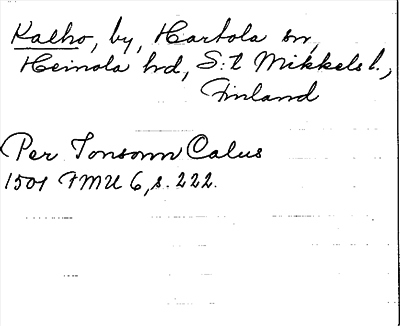 Kalho, by, Hartola sn,
Heinola hd, S:t Mikkels l.,
Finland
Per Tonsonn Calus
1501 FMU 6, s. 222.